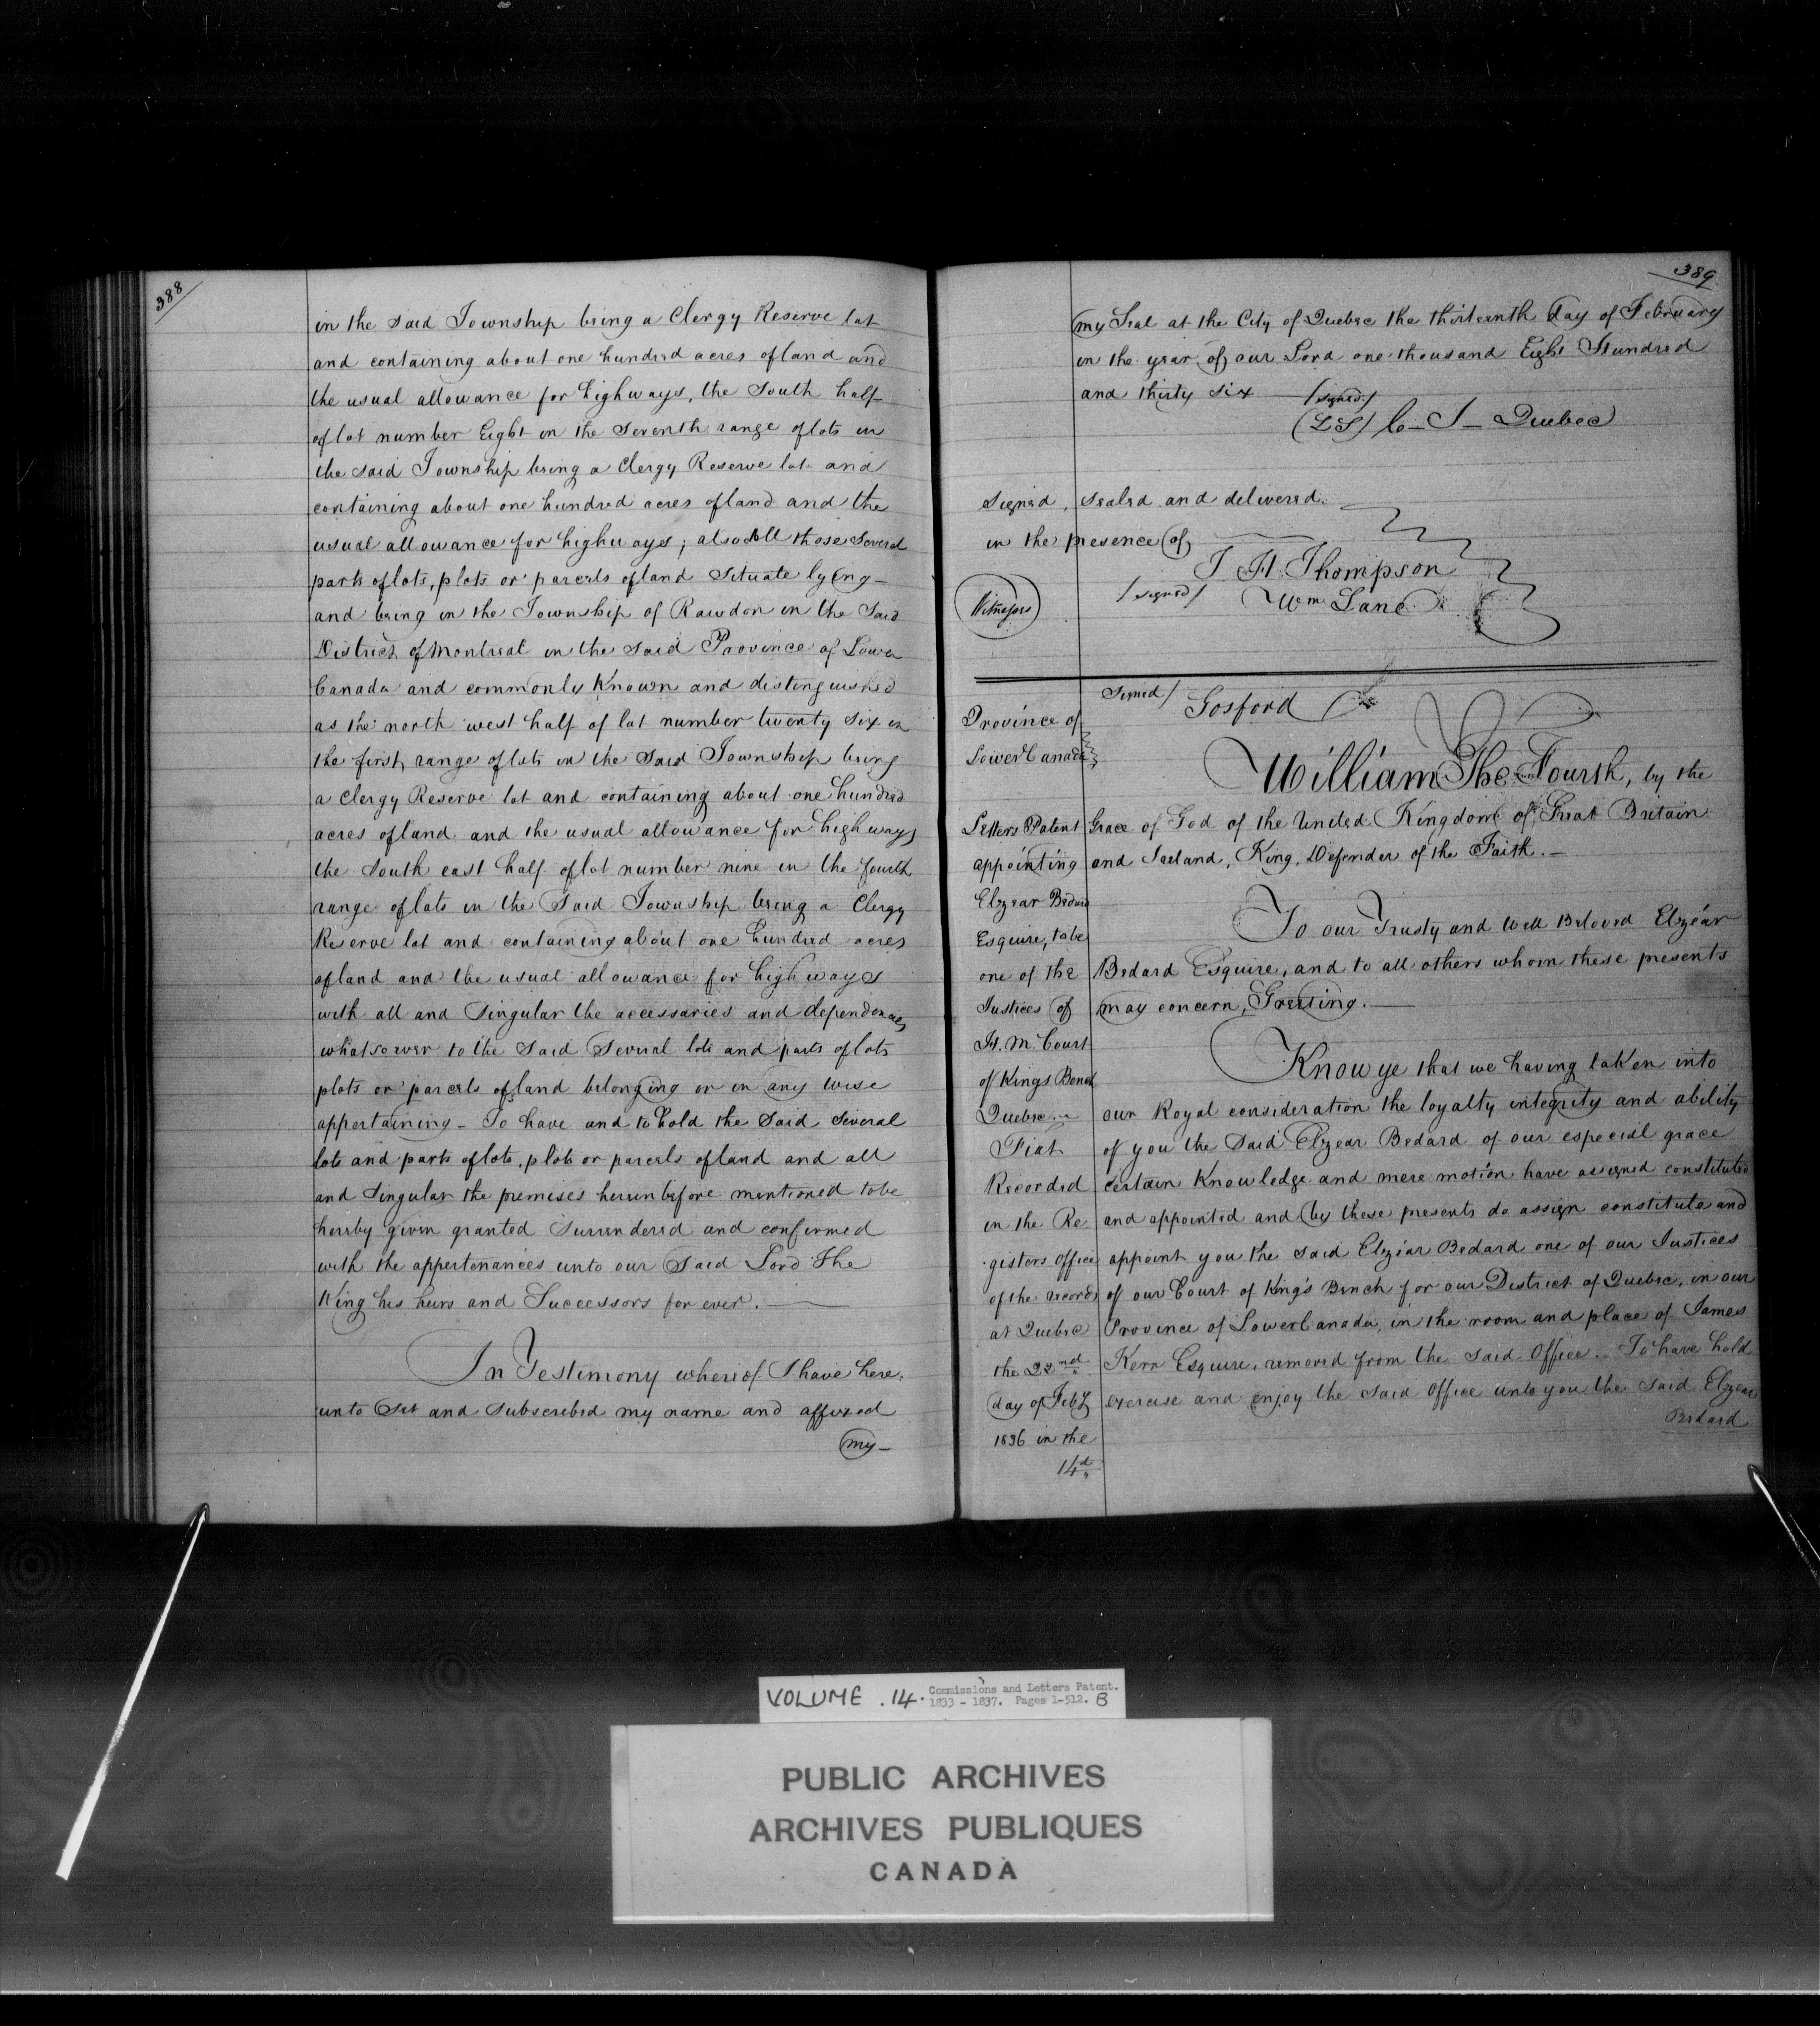 388
in the said Township being a Clergy Reserve lot
and containing about one hundred acres of land and
the usual allowance for highways, the South half
of lot number Eight in the Seventh range of lots in
the said Township being a Clergy Reserve lot and
containing about one hundred acres of land and the
usual allowance for highways; also All those Several
parts of lots, plots or parcels of land Situate lying
and being in the Township of Rawdon in the Said
District of Montreal in the said Province of Lower
Canada and commonly Known and distinguished
as the north west half of lot number twenty six in
the first range of lots in the Said Township being
a Clergy Reserve lot and containing about one hundred
acres of land and the usual allowance for highways
the South east half of lot number nine in the fourth
range of lots in the Said Township being a Clergy
Reserve lot and containing about one hundred acres
of land and the usual allowance for highways
with all and Singular the accessaries and dependencies
whatsoever to the Said Several lots and parts of lots
plots or parcels of land belonging or in any wise
appertaining - To have and to hold the Said Several
lots and parts of lots, plots or parcels of land and all
and Singular the premises herein before mentioned to be
hereby given granted Surrendered and confirmed
with the appertenances unto our Said Lord The
King his heirs and Successors for ever. —
In Testimony whereof I have here-
unto Set and Subscribed my name and affixed
my -
389
my Seal at the City of Quebec the thirteenth day of February
in the year of our Lord one thousand Eight Hundred
and thirty six /signed/
(LS) C - J - Quebec
Signed, Sealed and delivered
in the presence of
J H Thompson
Witnesses /signed/ Wm Lane
Signed/ Gosford
Province of
Lower Canada
William The Fourth, by the
Grace of God of the United Kingdom of Great Britain
and Ireland, King, Defender of the Faith. -
To our Trusty and Well Beloved Elzéar
Bedard Esquire, and to all others whom these presents
may concern, Greeting. —
Know ye that we having taken into
our Royal consideration the loyalty integrity and ability
of you the Said Elzear Bedard of our especial grace
certain Knowledge and mere motion have assigned constituted
and appointed and by these presents do assign constitute and
appoint you the Said Elzéar Bedard one of our Justices
of our Court of King's Bench for our District of Quebec, in our
Province of Lower Canada, in the room and place of James
Kerr Esquire, removed from the Said Office. To have hold
exercise and enjoy the Said Office unto you the Said Elzear
Bedard
Letters Patent
appointing
Elzear Bedard
Esquire, to be
one of the
Justices of
H. M. Court
of Kings Bench
Quebec
Fiat
Recorded
in the Re
gisters Office
of the records
at Quebec
the 22nd
day of Feby
1836 in the
14d
VOLUME .14. Commissions and Letters Patent.
1833 - 1837. Pages 1-512. B
PUBLIC ARCHIVES
ARCHIVES PUBLIQUES
CANADA